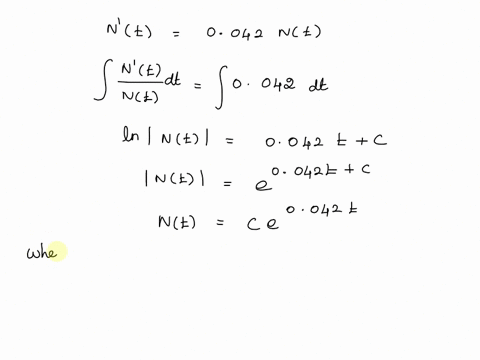 N'(t) = 0.042 N(t)
∫ N'(t)/N(t) dt = ∫ 0.042 dt
ln | N(t) | = 0.042 t + c
| N(t) | = e^{0.042t + c}
N(t) = c e^{0.042 t}
whe